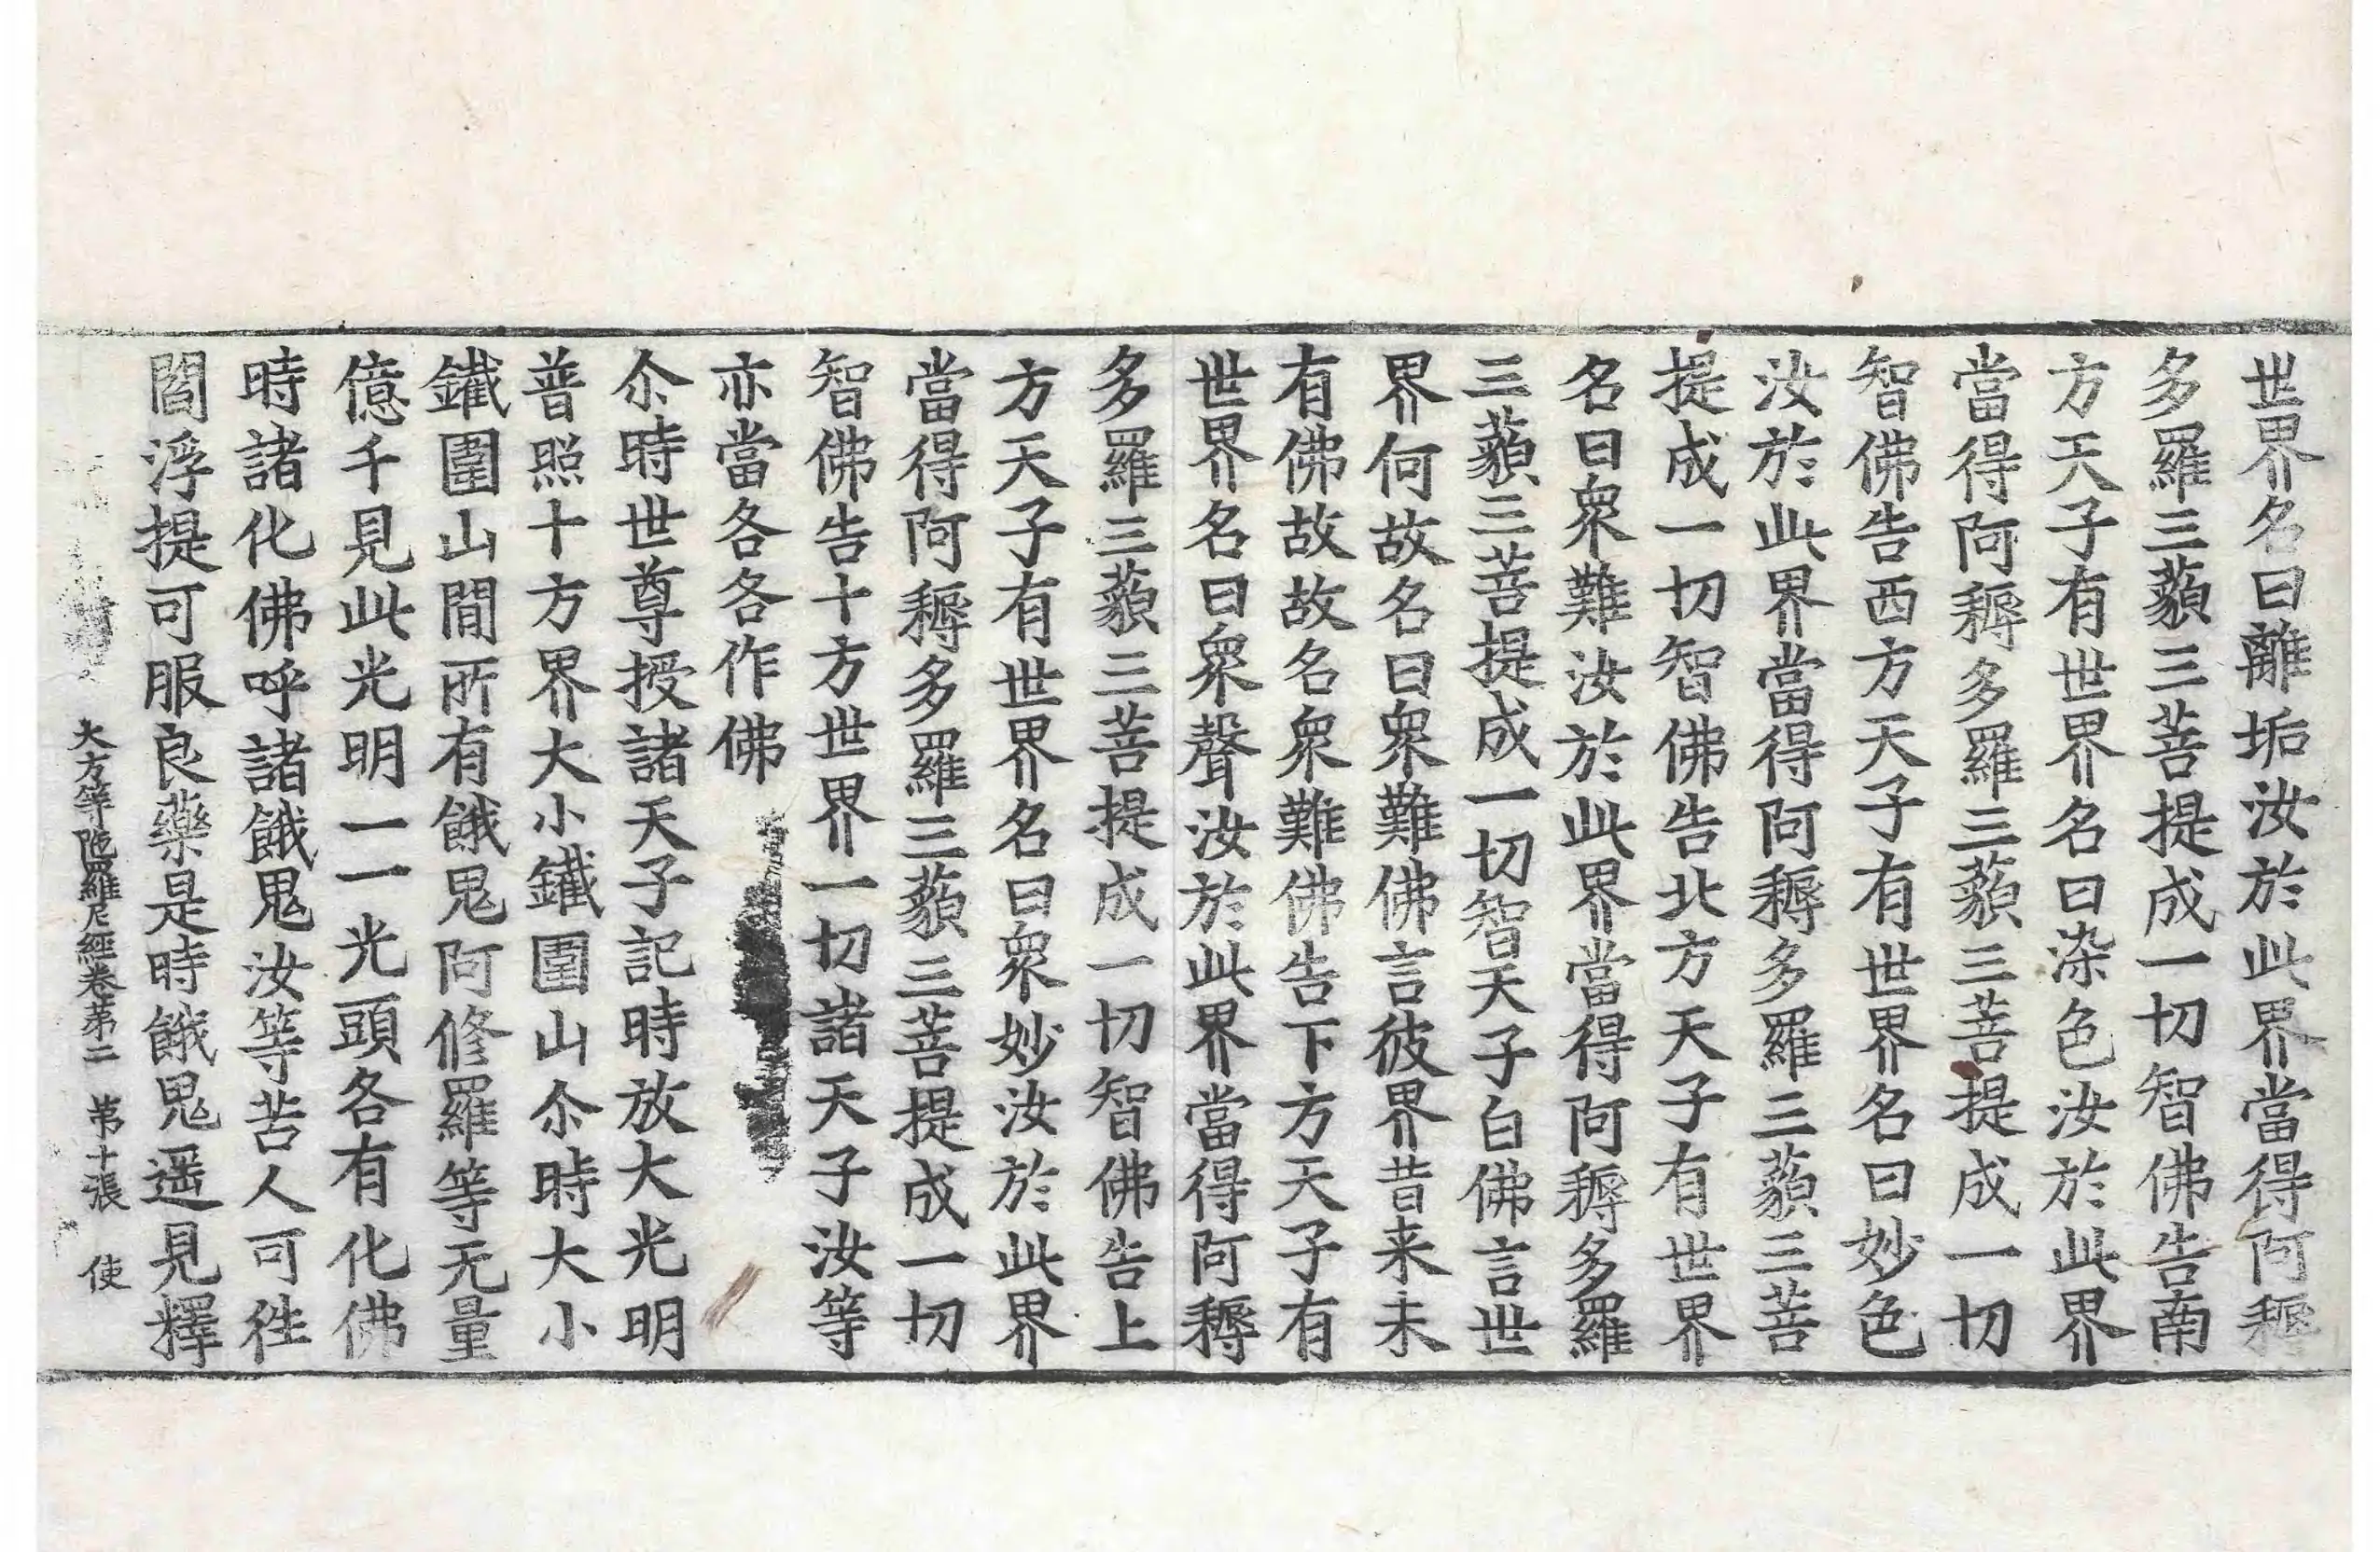 世界名曰離垢汝於此界當得阿耨
多羅三藐三菩提成一切智佛告南
方天子有世界名曰染色汝於此界
當得阿耨多羅三藐三菩提成一切
智佛告西方天子有世界名曰妙色
汝於此界當得阿耨多羅三藐三菩
提成一切智佛告北方天子有世界
名曰衆難汝於此界當得阿耨多羅
三藐三菩提成一切智天子白佛言世
界何故名曰衆難佛言彼界昔来未
有佛故故名衆難佛告下方天子有
世界名曰衆聲汝於此界當得阿耨
多羅三藐三菩提成一切智佛告上
方天子有世界名曰衆妙汝於此界
當得阿耨多羅三藐三菩提成一切
智佛告十方世界一切諸天子汝等
亦當各各作佛
尒時世尊授諸天子記時放大光明
普照十方界大小鐵圍山尒時大小
鐵圍山間所有餓鬼阿修羅等无量
億千見此光明一一光頭各有化佛
時諸化佛呼諸餓鬼汝等苦人可徃
閻浮提可服良藥是時餓鬼遥見釋
大方等陁羅尼經卷第二 第十張 使